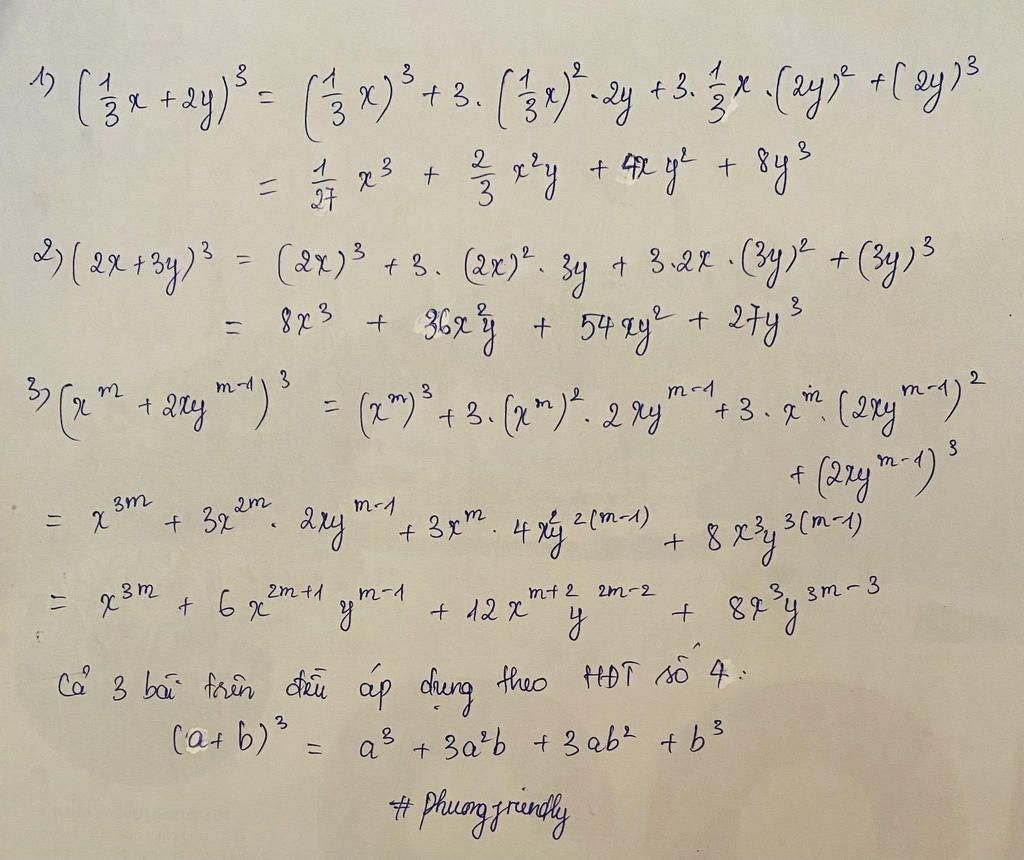 1) (1/3 x + 2y)³ = (1/3 x)³ + 3. (1/3 x)² . 2y + 3. 1/3 x . (2y)² + (2y)³
= 1/27 x³ + 2/3 x²y + 4xy² + 8y³
2) (2x + 3y)³ = (2x)³ + 3. (2x)² . 3y + 3.2x . (3y)² + (3y)³
= 8x³ + 36x²y + 54xy² + 27y³
3) (x^m + 2xy^(m-1))³ = (x^m)³ + 3. (x^m)² . 2xy^(m-1) + 3 . x^m . (2xy^(m-1))²
+ (2xy^(m-1))³
= x^(3m) + 3x^(2m) . 2xy^(m-1) + 3x^m . 4x²y^(2(m-1)) + 8x³y^(3(m-1))
= x^(3m) + 6x^(2m+1) y^(m-1) + 12x^(m+2) y^(2m-2) + 8x³y^(3m-3)
Cả 3 bài trên đều áp dụng theo HĐT số 4:
(a+b)³ = a³ + 3a²b + 3ab² + b³
# Phuongfriendly